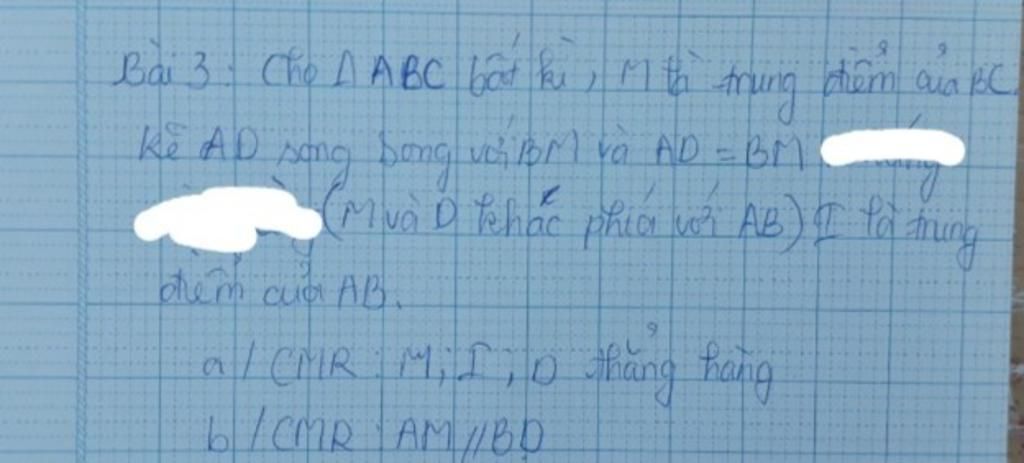 Bài 3: Cho Δ ABC bất kì, M là trung điểm của BC.
Kẻ AD song song với BM và AD = BM
(M và D khác phía với AB) I là trung
điểm của AB.
a / CMR : M, I, D thẳng hàng
b / CMR : AM // BD